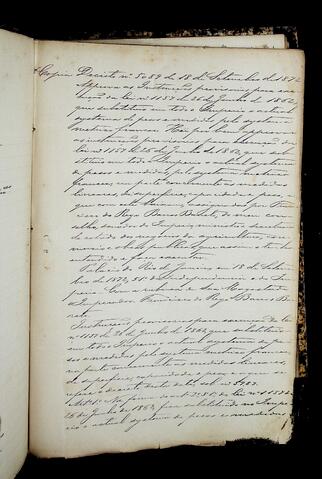 Copia Decreto nº 5089 de 18 de Setembro de 1872
Approva as Instrucções provisorias para exe-
cução da lei nº 1157 de 26 de Junho de 1862,
que substituio em todo o Imperio o actual
systema de pesos e medidas pelo systema
metrico francez. Hei por bem approvar
as instrucções provisorias para execução da
lei nº 1157 de 26 de Junho de 1862, que subs-
tituio em todo o Imperio o actual systema
de pesos e medidas pelo systema metrico
francez, na parte concernente as medidas
lineares, de superficie, capacidade e peso, e
que com este baixão, assignadas por Fran-
cisco do Rego Barros Barreto, do meu con-
selho, senador do Imperio, ministro e secretario
de estado dos negocios da agricultura, com-
mercio e obras publicas, que assim o tenha
entendido e faça executar.
Palacio do Rio de Janeiro em 18 de Setem-
bro de 1872, 51º da Independencia e do Im-
perio. Com a rubrica de Sua Magestade
o Imperador. Francisco do Rego Barros Bar-
reto.
Instrucções provisorias para execução da lei
nº 1157 de 26 de Junho de 1862, que substituio
em todo o Imperio o actual systema de pe-
sos e medidas pelo systema metrico francez,
na parte concernente as medidas lineares
de superficie, capacidade e peso, e a que se
refere o decreto desta data sob nº 5089.
Art. 1º Na forma do art. 2 § 1º da lei nº 1157 de
26 de Junho de 1862, fica substituido no Impe-
rio o actual systema de pesos e medidas